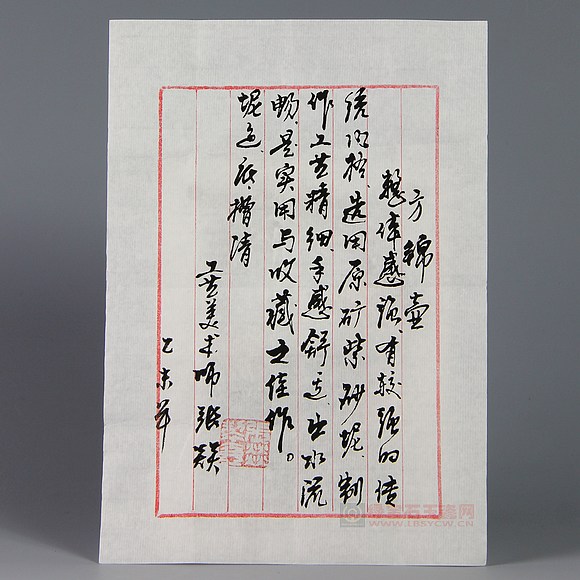 方 壶
整体感强、有较强的传
统风格、选用原矿紫砂泥、制
作工艺精细、手感舒适、出水流
畅、是实用与收藏之佳作。
泥色：底槽清
工艺美术师 张
乙未年
WWW.LBSYCW.CN